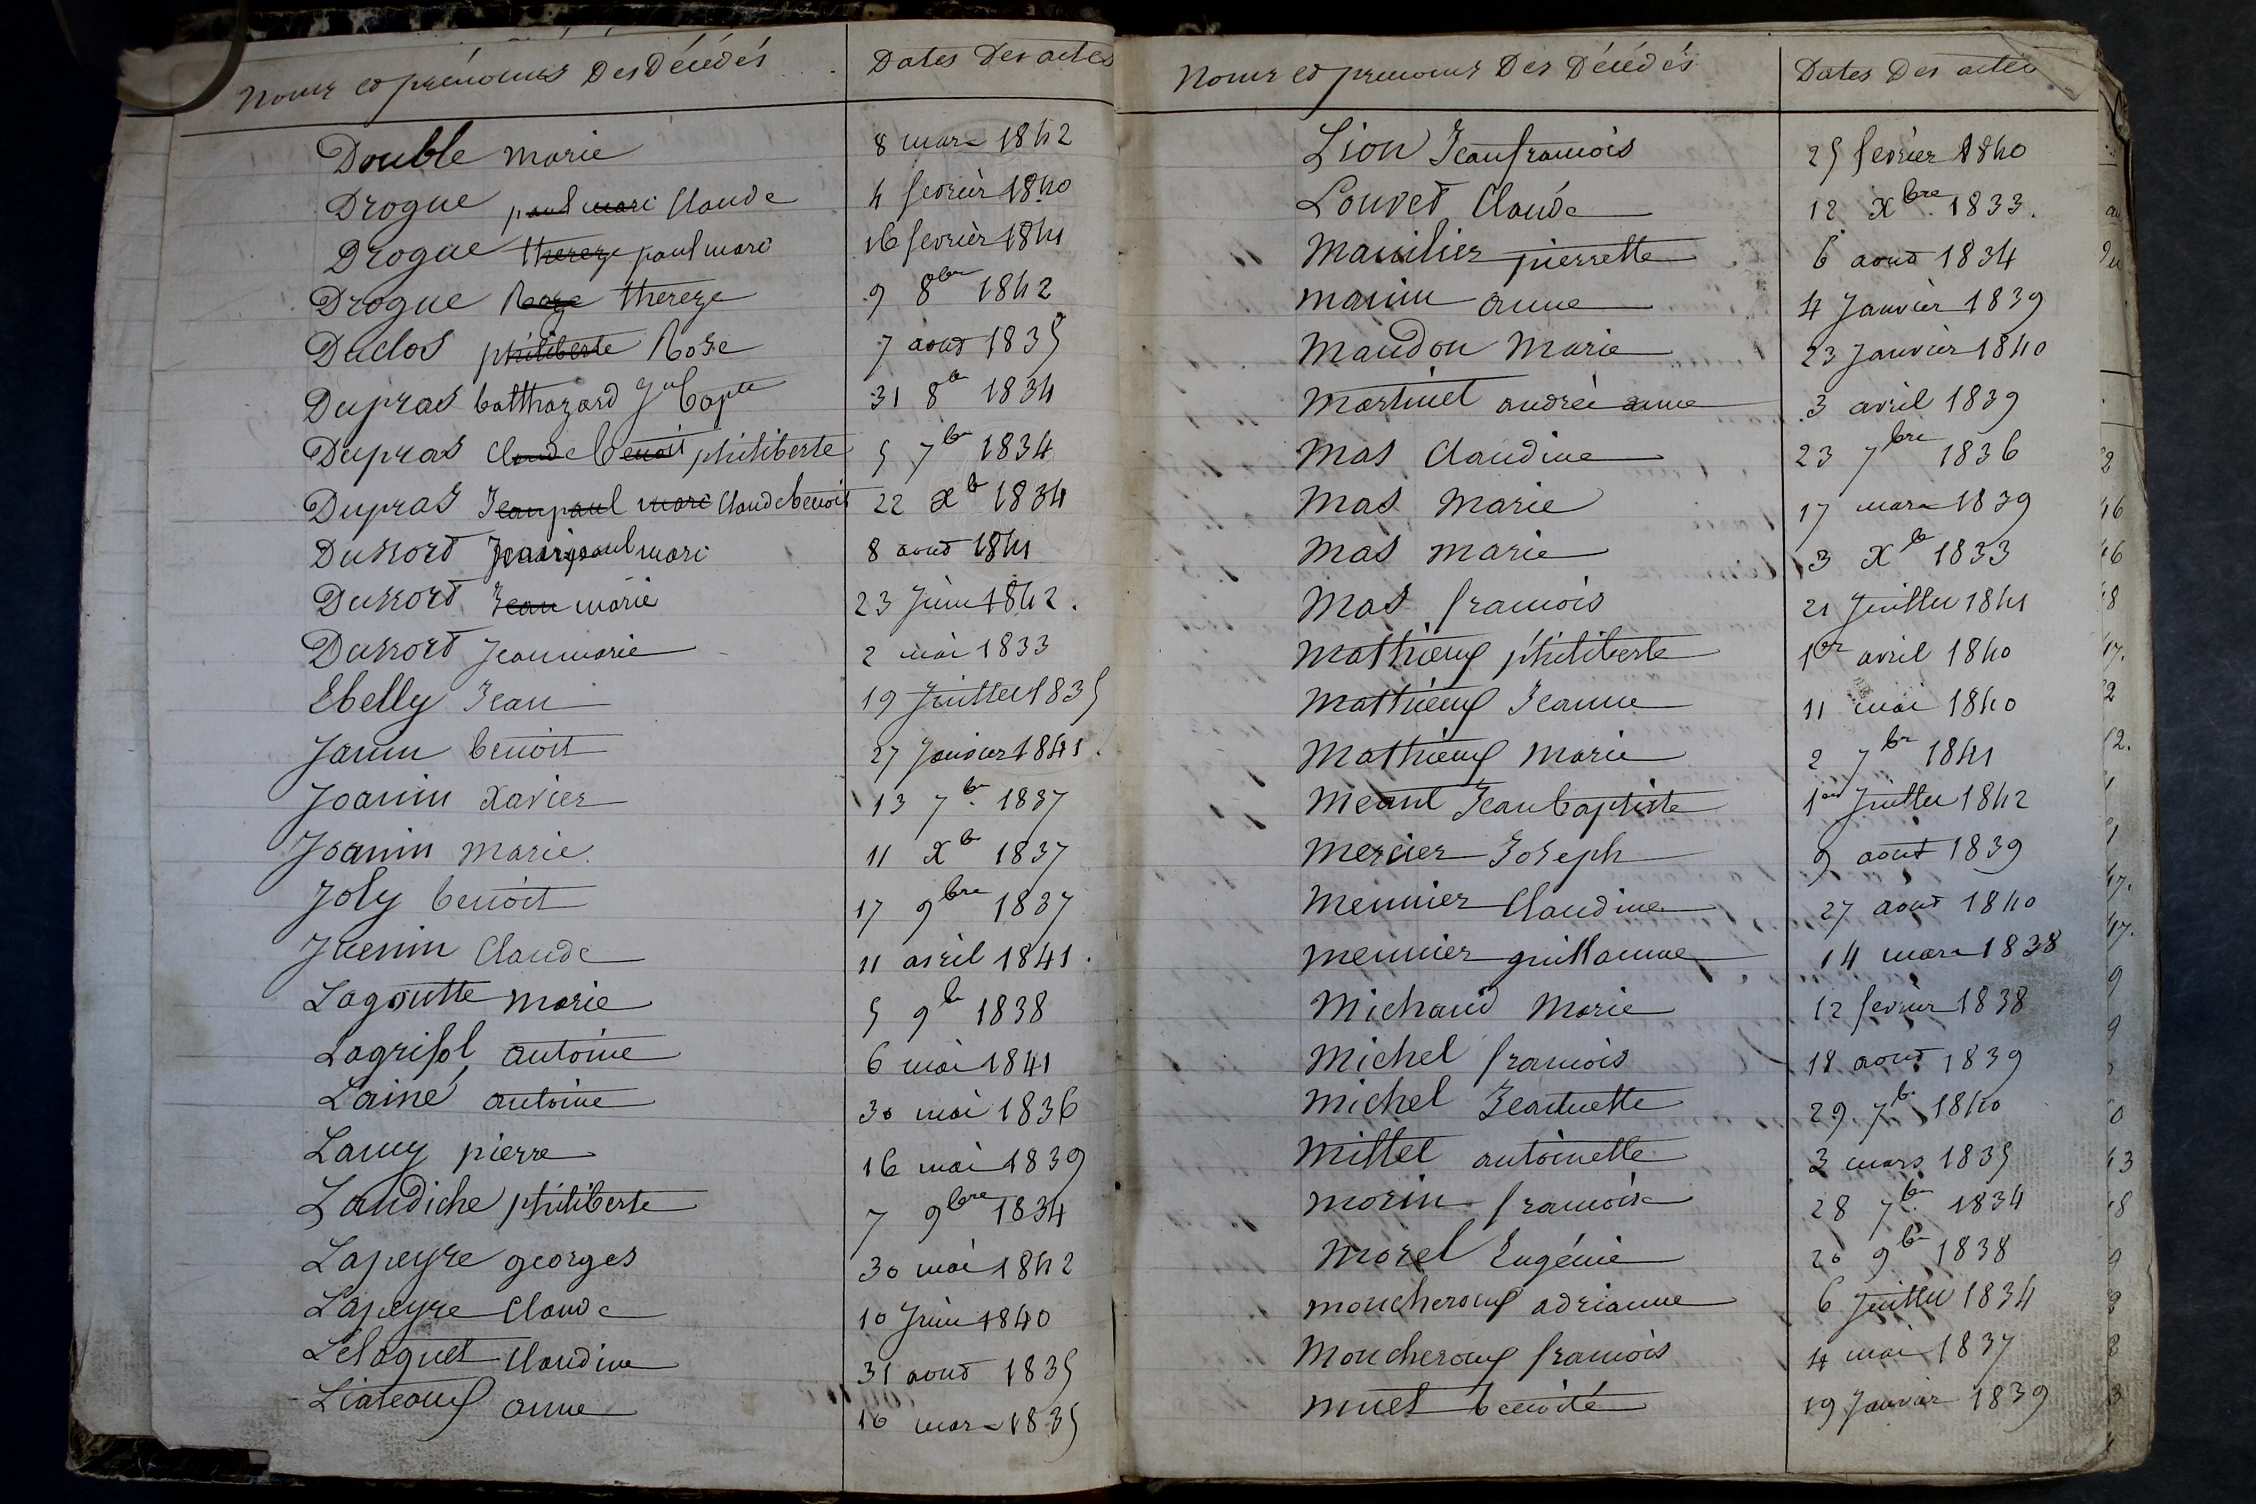 Noms et prénoms Des Décédés Dates Des actes
Double marie 8 mars 1842
Drogue paul marc Claude 4 fevrier 1840
Drogue thereze paul marc 16 fevrier 1841
Drogue Roze thereze 9 8bre 1842
Duclos philiberte Rose 7 aout 1835
Dupras batthazard Jn bapte 31 8b 1834
Dupras Claude benoit philiberte 5 7bre 1834
Dupras Jean paul marc Claude benoit 22 Xb 1834
Dussord Jean paul marc 8 aout 1841
Dussord Jean marie 23 Juin 1842.
Dussord Jean marie 2 mai 1833
Ebelly Jean 19 Juillet 1835
Janin benoit 27 Janvier 1841.
Joanin Xavier 13 7b. 1837
Joanin marie. 11 Xb 1837
Joly benoit 17 9bre 1837
Juenin Claude 11 avril 1841.
Lagoutte marie 5 9b 1838
Lagrisol antoine 6 mai 1841
Lainé antoine 30 mai 1836
Lamy pierre 16 mai 1839
Landiche philiberte 7 9bre 1834
Lapeyre georges 30 mai 1842
Lapeyre Claude 10 Juin 1840
Lelaquet Claudine 31 aout 1835
Liateaux anne 16 mars 1835
Noms et prenoms Des Décédés Dates Des actes
Lion Jean francois 25 fevrier 1840
Louvet Claude 12 Xbre 1833.
Mauilier pierrette 6 aout 1834
manin anne 4 Janvier 1839
Maudon Marie 23 Janvier 1840
Martinet andrée anne 3 avril 1839
Mas Claudine 23 7bre 1836
Mas Marie 17 mars 1839
Mas marie 3 Xb 1833
Mas francois 21 Juillet 1841
Mathieux philiberte 1er avril 1840
Mathieux Jeanne 11 mai 1840
Mathieux Marie 2 7br 1841
Meant Jean baptiste 1er Juillet 1842
Mercier Joseph 9 aout 1839
Meunier Claudine 27 aout 1840
meunier guillaume 14 mars 1838
Michaud Marie 12 fevrier 1838
Michel francois 18 aout 1839
Michel Jeannette 29 7b. 1840
Millet antoinette 3 mars 1835
Morin francoise 28 7b. 1834
Morel Eugénie 20 9b 1838
moucheroux adrianne 6 Juillet 1834
Moucheroux francois 4 mai 1837
muet benoite 19 Janvier 1839